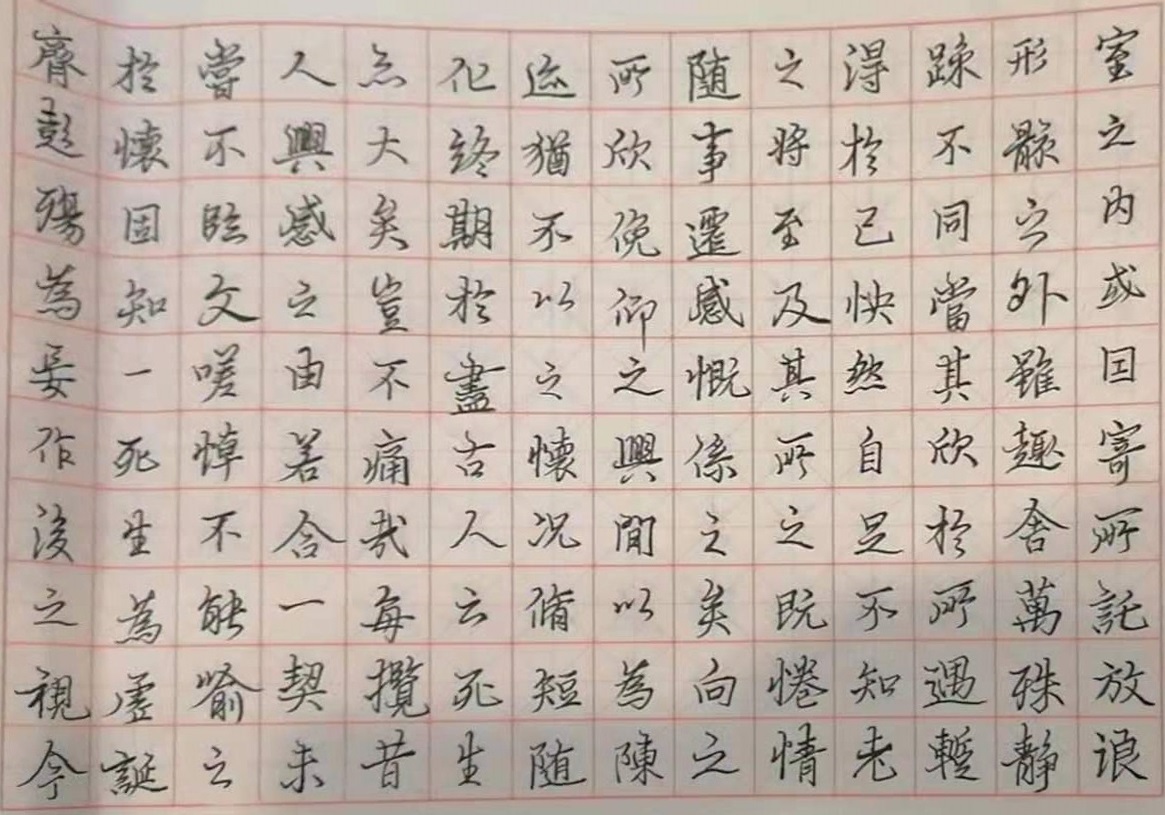 室之内或因寄所託放浪
形骸之外雖趣舍萬殊静
踈不同當其欣於所遇暫
得於己快然自足不知老
之將至及其所之既惓情
随事遷感慨係之矣向之
所欣俛仰之興間以為陳
迹猶不以之懷况脩短随
化終期於盡古人云死生
亦大矣豈不痛哉每攬昔
人興感之由若合一契未
嘗不臨文嗟悼不能喻之
於懷固知一死生為虛誕
齊彭殤為妄作後之視今